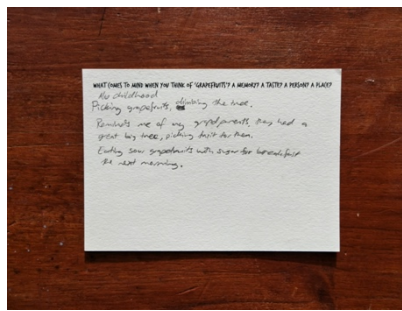 WHAT COMES TO MIND WHEN YOU THINK OF 'GRAPEFRUITS'? A MEMORY? A TASTE? A PERSON? A PLACE?
My childhood
Picking grapefruits, climbing the tree.
Reminds me of my grandparents, they had a
great big tree, picking fruit for them.
Eating sour grapefruits with sugar for breakfast
the next morning.